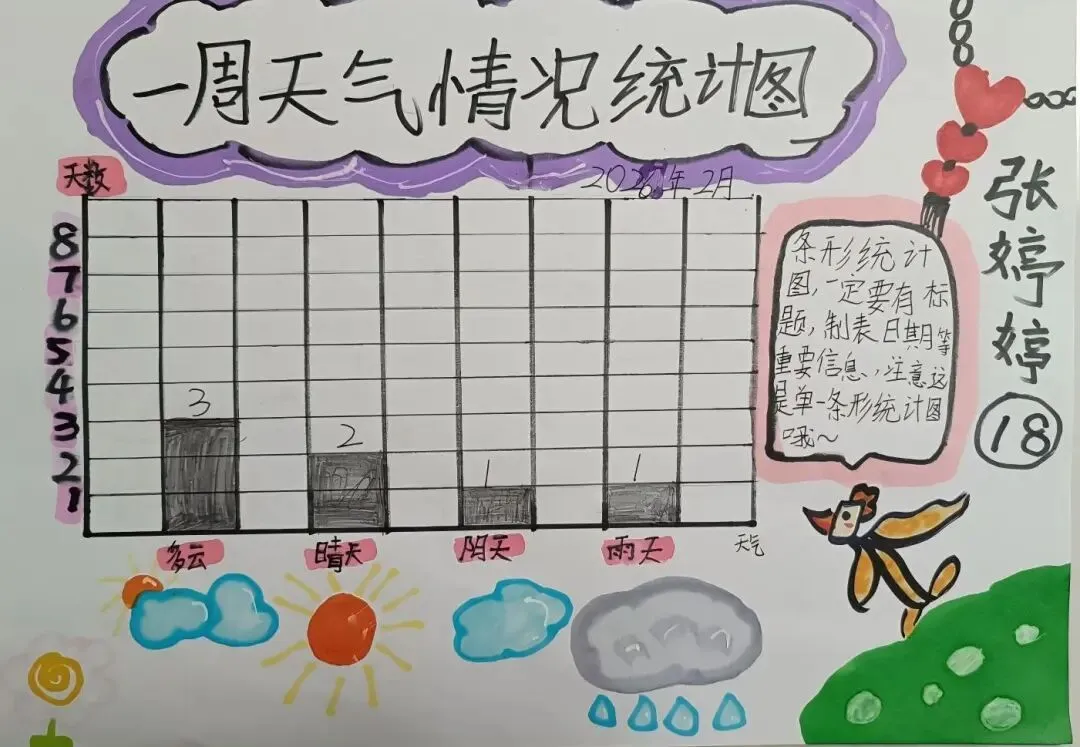 一周天气情况统计图
2026年2月
天数
8
7
6
5
4
3
2
1
3
2
1
1
多云
晴天
阴天
雨天
天气
条形统计
图,一定要有标
题,制表日期等
重要信息,注意这
是单一条形统计图
哦~
张
婷
婷
18